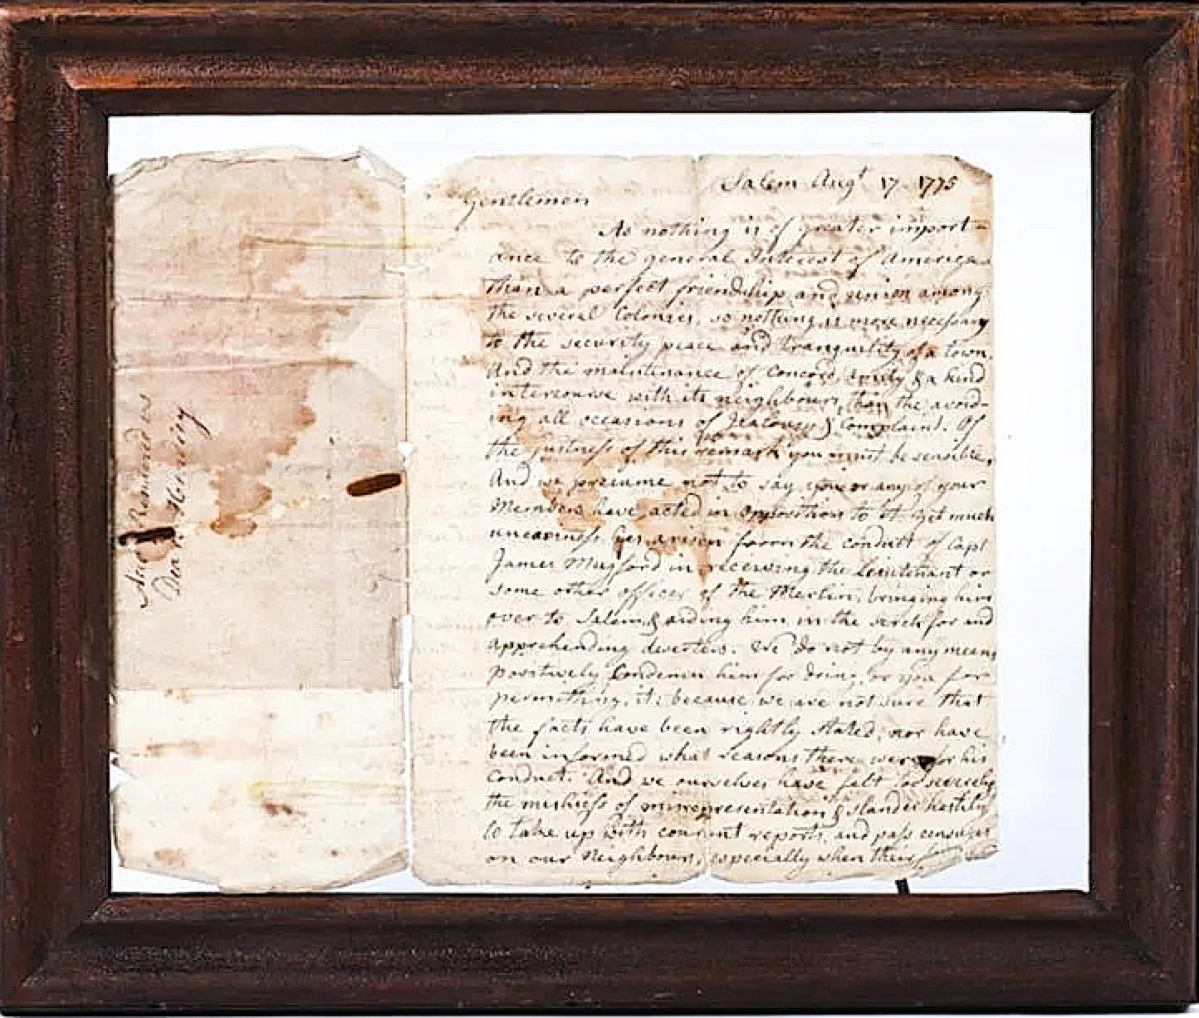 Salem Augt 17 1775
Gentlemen
As nothing is of greater import-
ance to the general Interest of America
than a perfect friendship and union among
the several Colonies, so nothing is more necessary
to the security peace and tranquility of a town,
And the maintenance of Concord, amity & a kind
intercourse with its neighbours, than the avoid-
ing all occasions of Jealousy & Complaint. Of
the justness of this remark you must be sensible,
And we presume not to say, you or any of your
Members have acted in opposition to it. Yet much
uneasiness has arisen from the conduct of Capt
James Mugford in receiving the Lieutenant or
some other officer of the Merlin, bringing him
over to Salem & aiding him in the serch for and
apprehending deserters. We do not by any means
positively Condemn him for doing, or you for
permitting it; because we are not sure that
the facts have been rightly stated; nor have
been informed what reasons there were for his
conduct. And we ourselves have felt too severely
the mischiefs of misrepresentation & slander hastily
to take up with current reports, and pass censures
on our Neighbours, especially when their